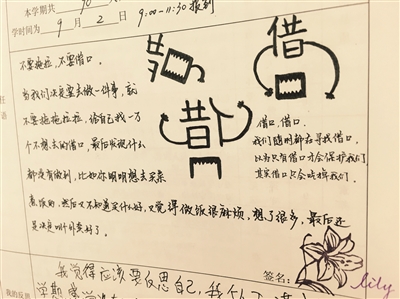 本学期共
学时间为 9 月 2 日 9:00-11:30 报到
不要拖拉,不要借口。
当我们决定要去做一件事,就
不要拖拖拉拉,给自己找一万
个不想去的借口,最后发现什么
都没有做到,比如你明明想去买菜
煮饭的,然后又不知道买什么好,又觉得做饭很麻烦,想了很多,最后还
是决定叫个外卖好了。
借
昔
借口,借口,
我们随时都在寻找借口
以为只有借口才会保护我们
其实借口只会吃掉我们。
签名:
lily
我觉得应该要反思自己,我